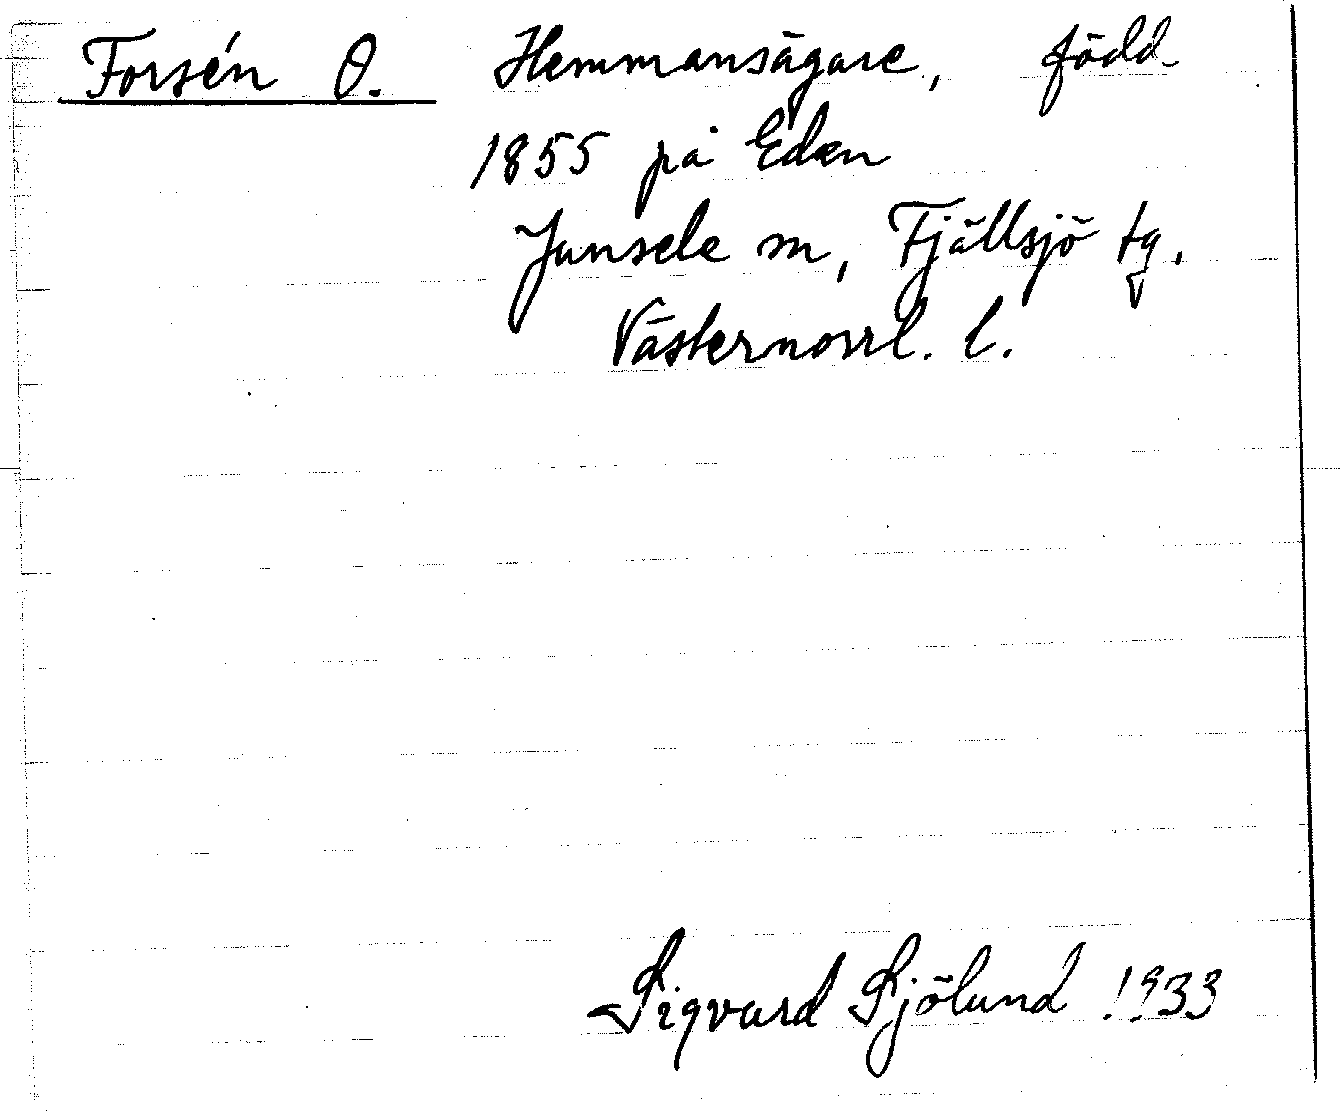 Forsén O. Hemmansägare, född
1855 på Eden
Junsele sn, Fjällsjö tg.
Västernorrl. l.
Sigvard Sjölund 1933